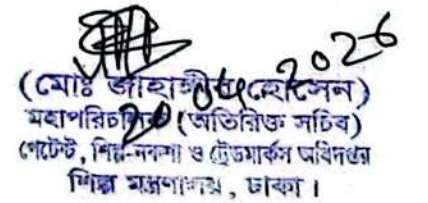 20.04.2026
(মোঃ জাহাঙ্গীর হোসেন)
মহাপরিচালক (অতিরিক্ত সচিব)
পেটেন্ট, শিল্প-নকশা ও ট্রেডমার্কস অধিদপ্তর
শিল্প মন্ত্রণালয়, ঢাকা।